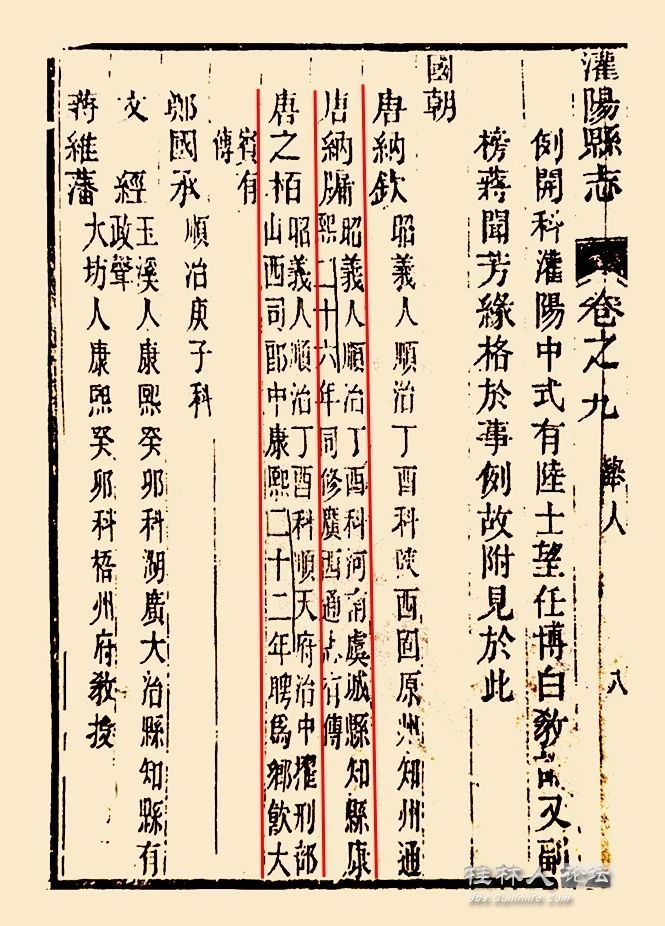 灌陽縣志 卷之九 舉人 八
例開科灌陽中式有陸士望任博白教諭又副
榜蔣聞芳緣格於事例故附見於此
國朝
唐納欽 昭義人順治丁酉科陝西固原州知州通
唐納牖 昭義人順治丁酉科河南虞城縣知縣康
熙二十六年同修廣西通志有傳
唐之栢 昭義人順治丁酉科順天府治中擢刑部
山西司郎中康熙二十二年聘爲鄉飲大
賓有
傳
鄭國承 順治庚子科
文經 玉溪人康熙癸卯科湖廣大治縣知縣有
政聲
蔣維藩 大坊人康熙癸卯科梧州府教授
桂林人论坛